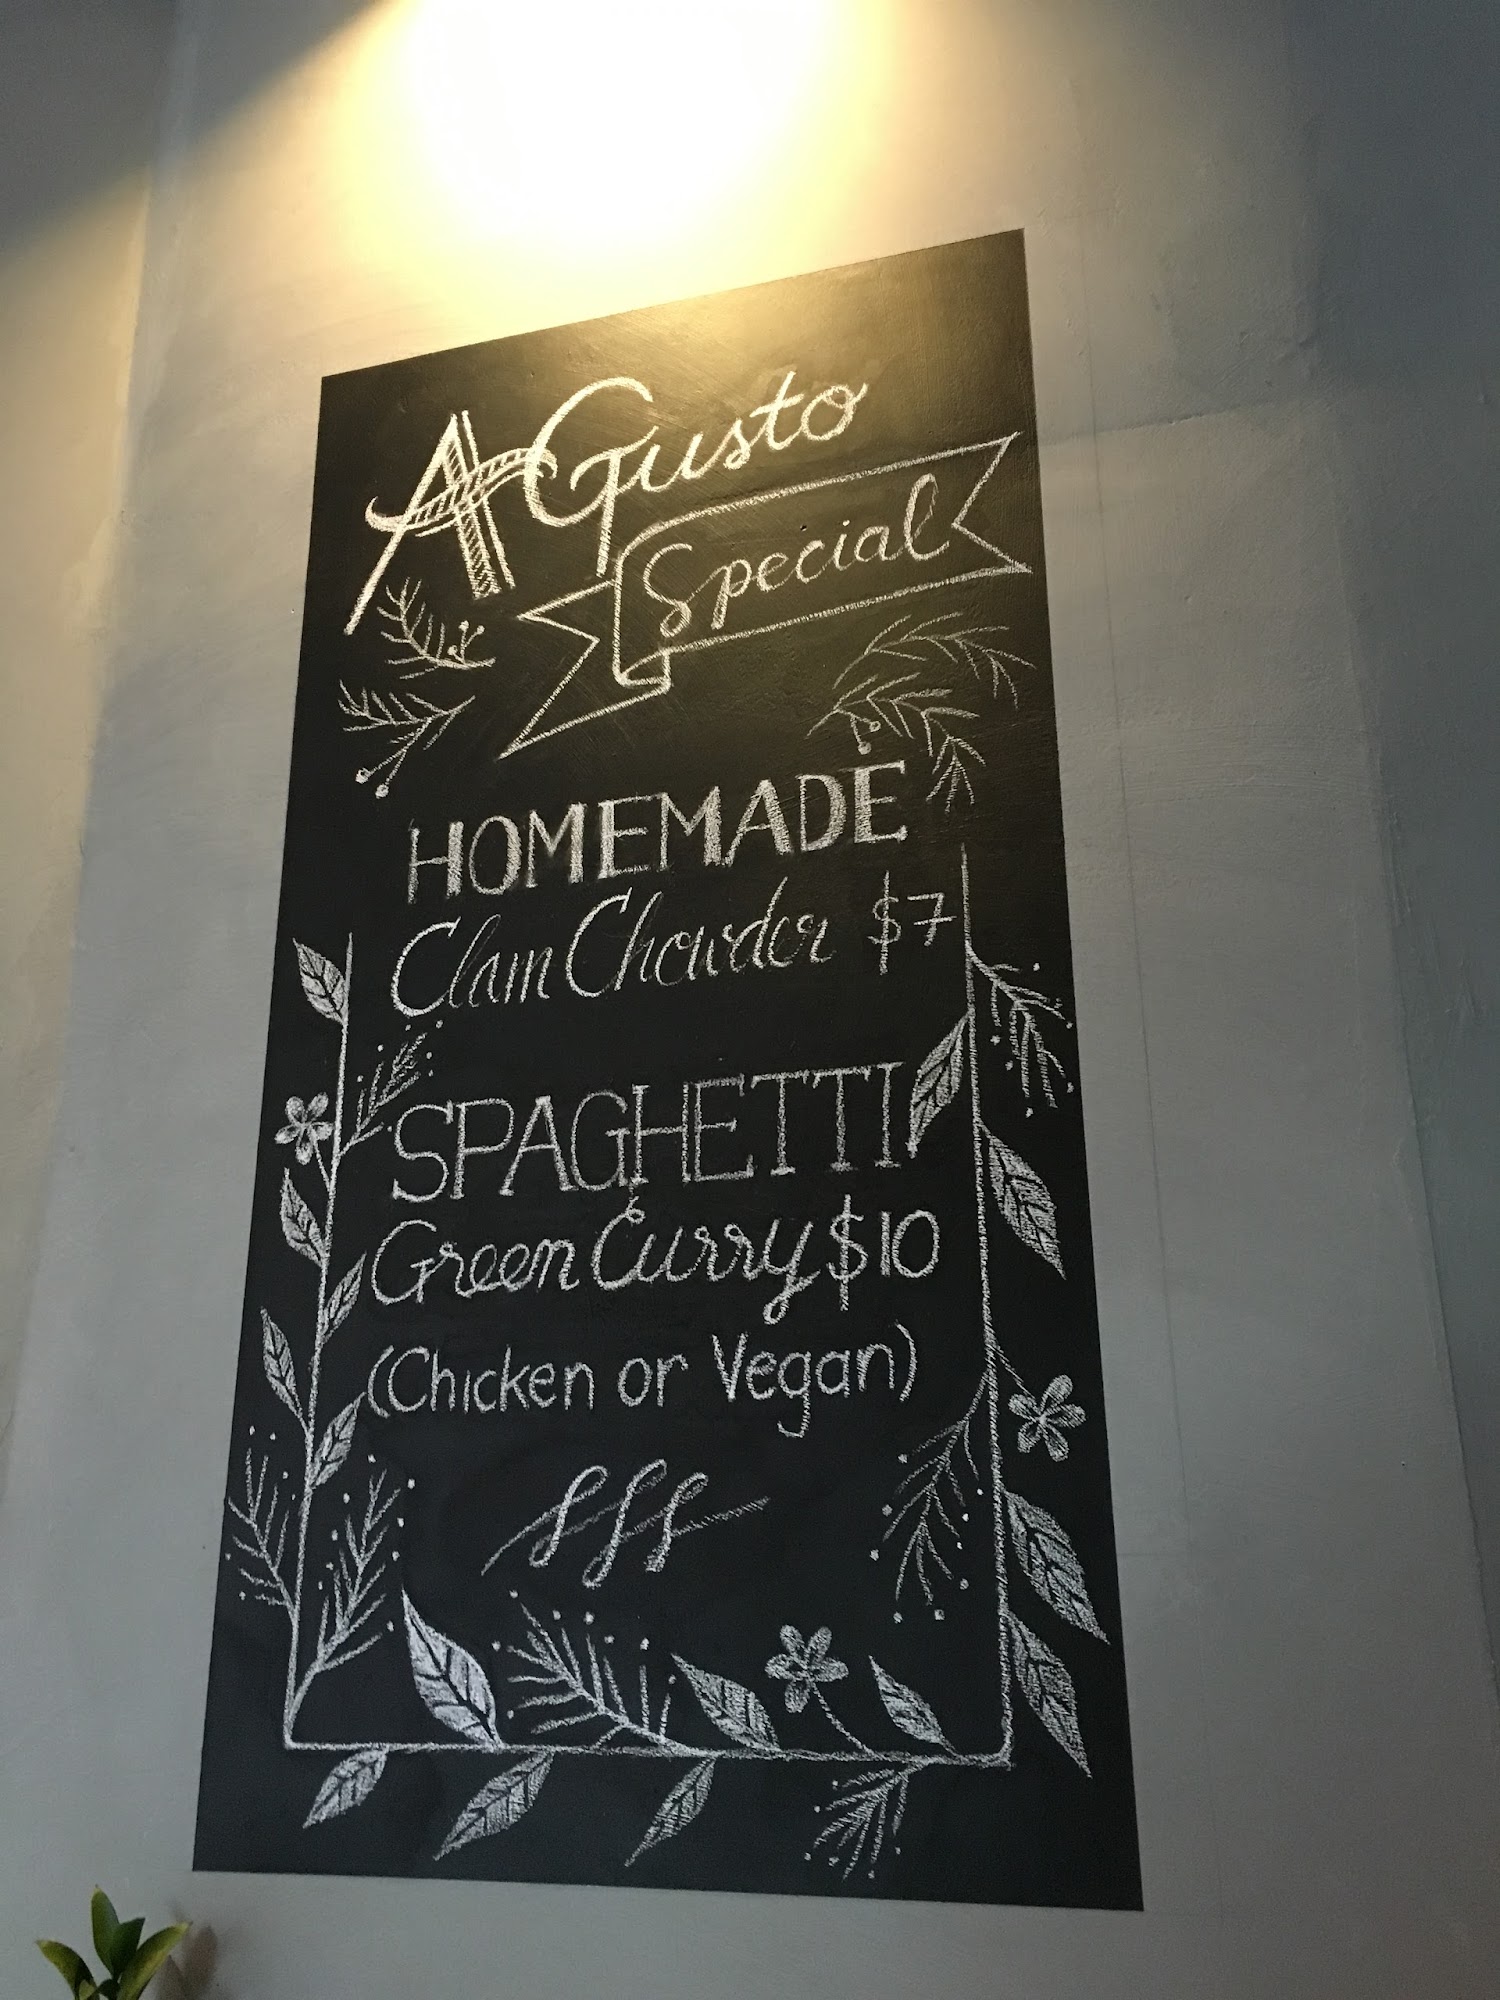 A Gusto
Special
HOMEMADE
Clam Chowder $7
SPAGHETTI
Green Curry $10
(Chicken or Vegan)